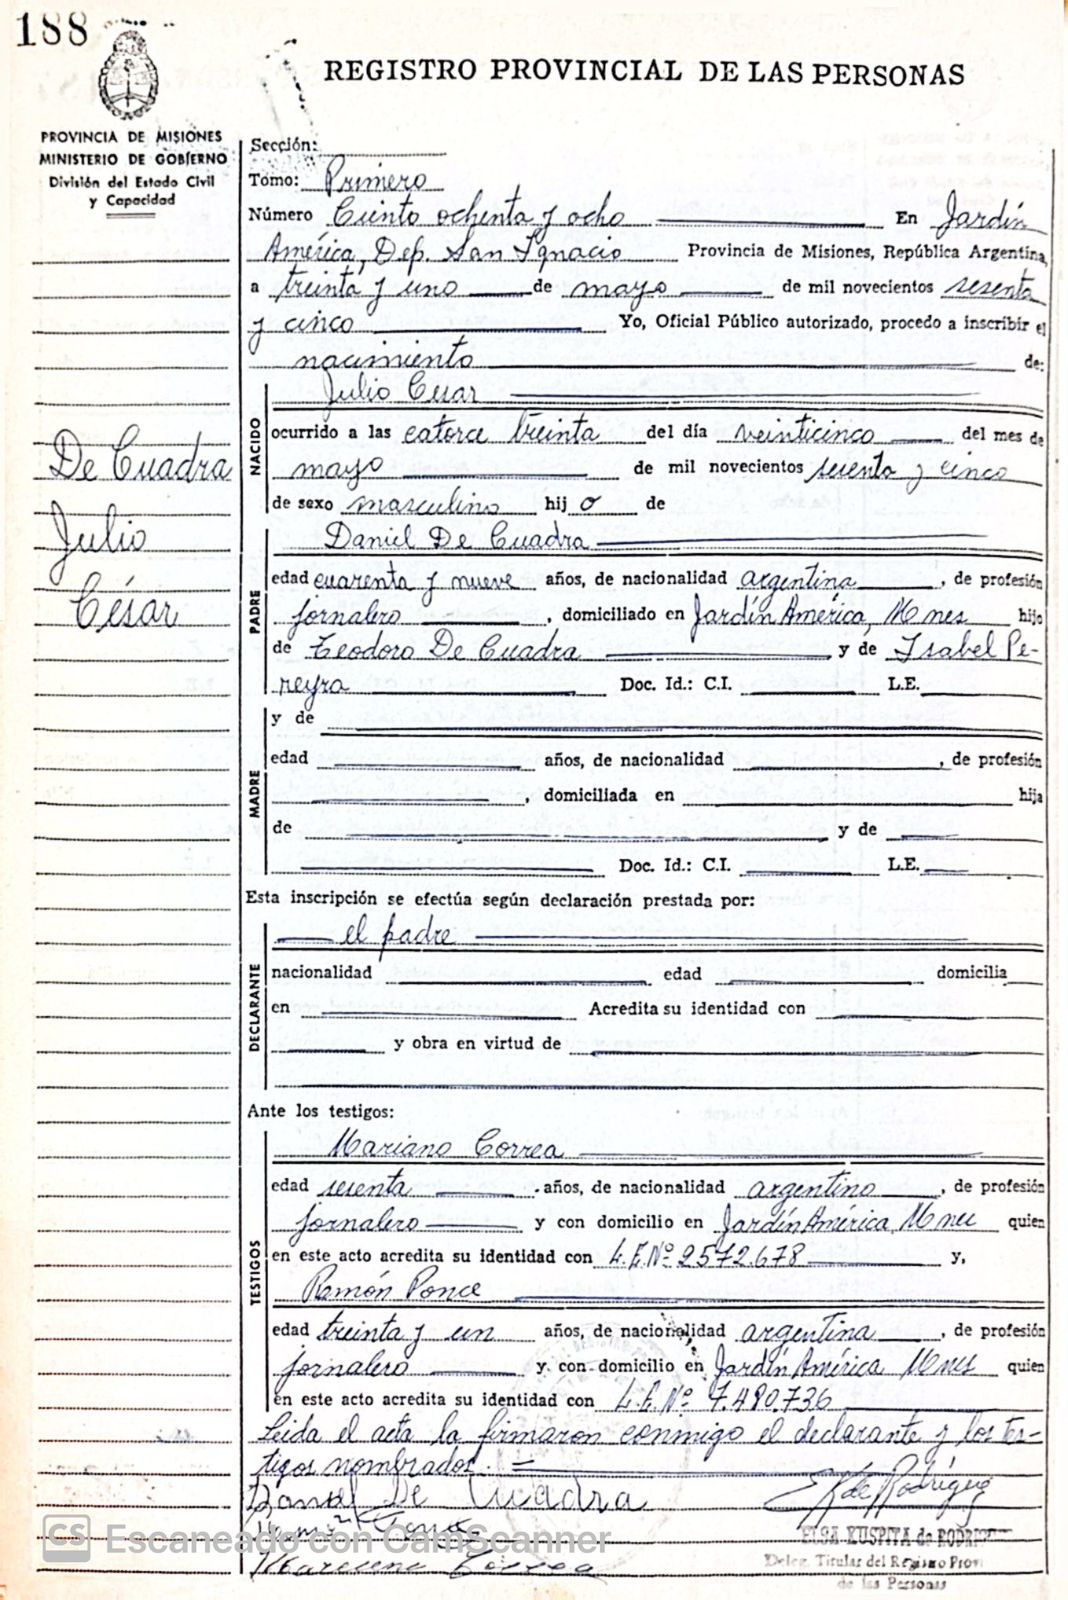 188
REGISTRO PROVINCIAL DE LAS PERSONAS
PROVINCIA DE MISIONES
MINISTERIO DE GOBIERNO
División del Estado Civil
y Capacidad
De Cuadra
Julio
César
Sección:
Tomo: Primero
Número Ciento ochenta y ocho En Jardín
América, Dep. San Ignacio Provincia de Misiones, República Argentina,
a treinta y uno de mayo de mil novecientos sesenta
y cinco Yo, Oficial Público autorizado, procedo a inscribir el
nacimiento de:
NACIDO
Julio César
ocurrido a las catorce treinta del día veinticinco del mes de
mayo de mil novecientos sesenta y cinco
de sexo masculino hij o de
PADRE
Daniel De Cuadra
edad cuarenta y nueve años, de nacionalidad argentina, de profesión
jornalero, domiciliado en Jardín América, Mnes hijo
de Teodoro De Cuadra y de Isabel Pe-
reyra Doc. Id.: C.I. L.E.
MADRE
y de
edad años, de nacionalidad , de profesión
, domiciliada en hija
de y de
Doc. Id.: C.I. L.E.
Esta inscripción se efectúa según declaración prestada por:
DECLARANTE
el padre
nacionalidad edad domicilia
en Acredita su identidad con
y obra en virtud de
Ante los testigos:
TESTIGOS
Mariano Correa
edad sesenta años, de nacionalidad argentino, de profesión
jornalero y con domicilio en Jardín América, Mnes quien
en este acto acredita su identidad con L.E.Nº 2572.678 y,
Ramón Ponce
edad treinta y un años, de nacionalidad argentina, de profesión
jornalero y con domicilio en Jardín América Mnes quien
en este acto acredita su identidad con L.E. Nº 7.480.736
Leida el acta la firmaron conmigo el declarante y los tes-
tigos nombrados. =
Daniel De Cuadra
E K de Rodríguez
ELSA KUSPITA de RODRI
Deleg. Titular del Registro Provi
de las Personas
CS Escaneado con CamScanner
Correa